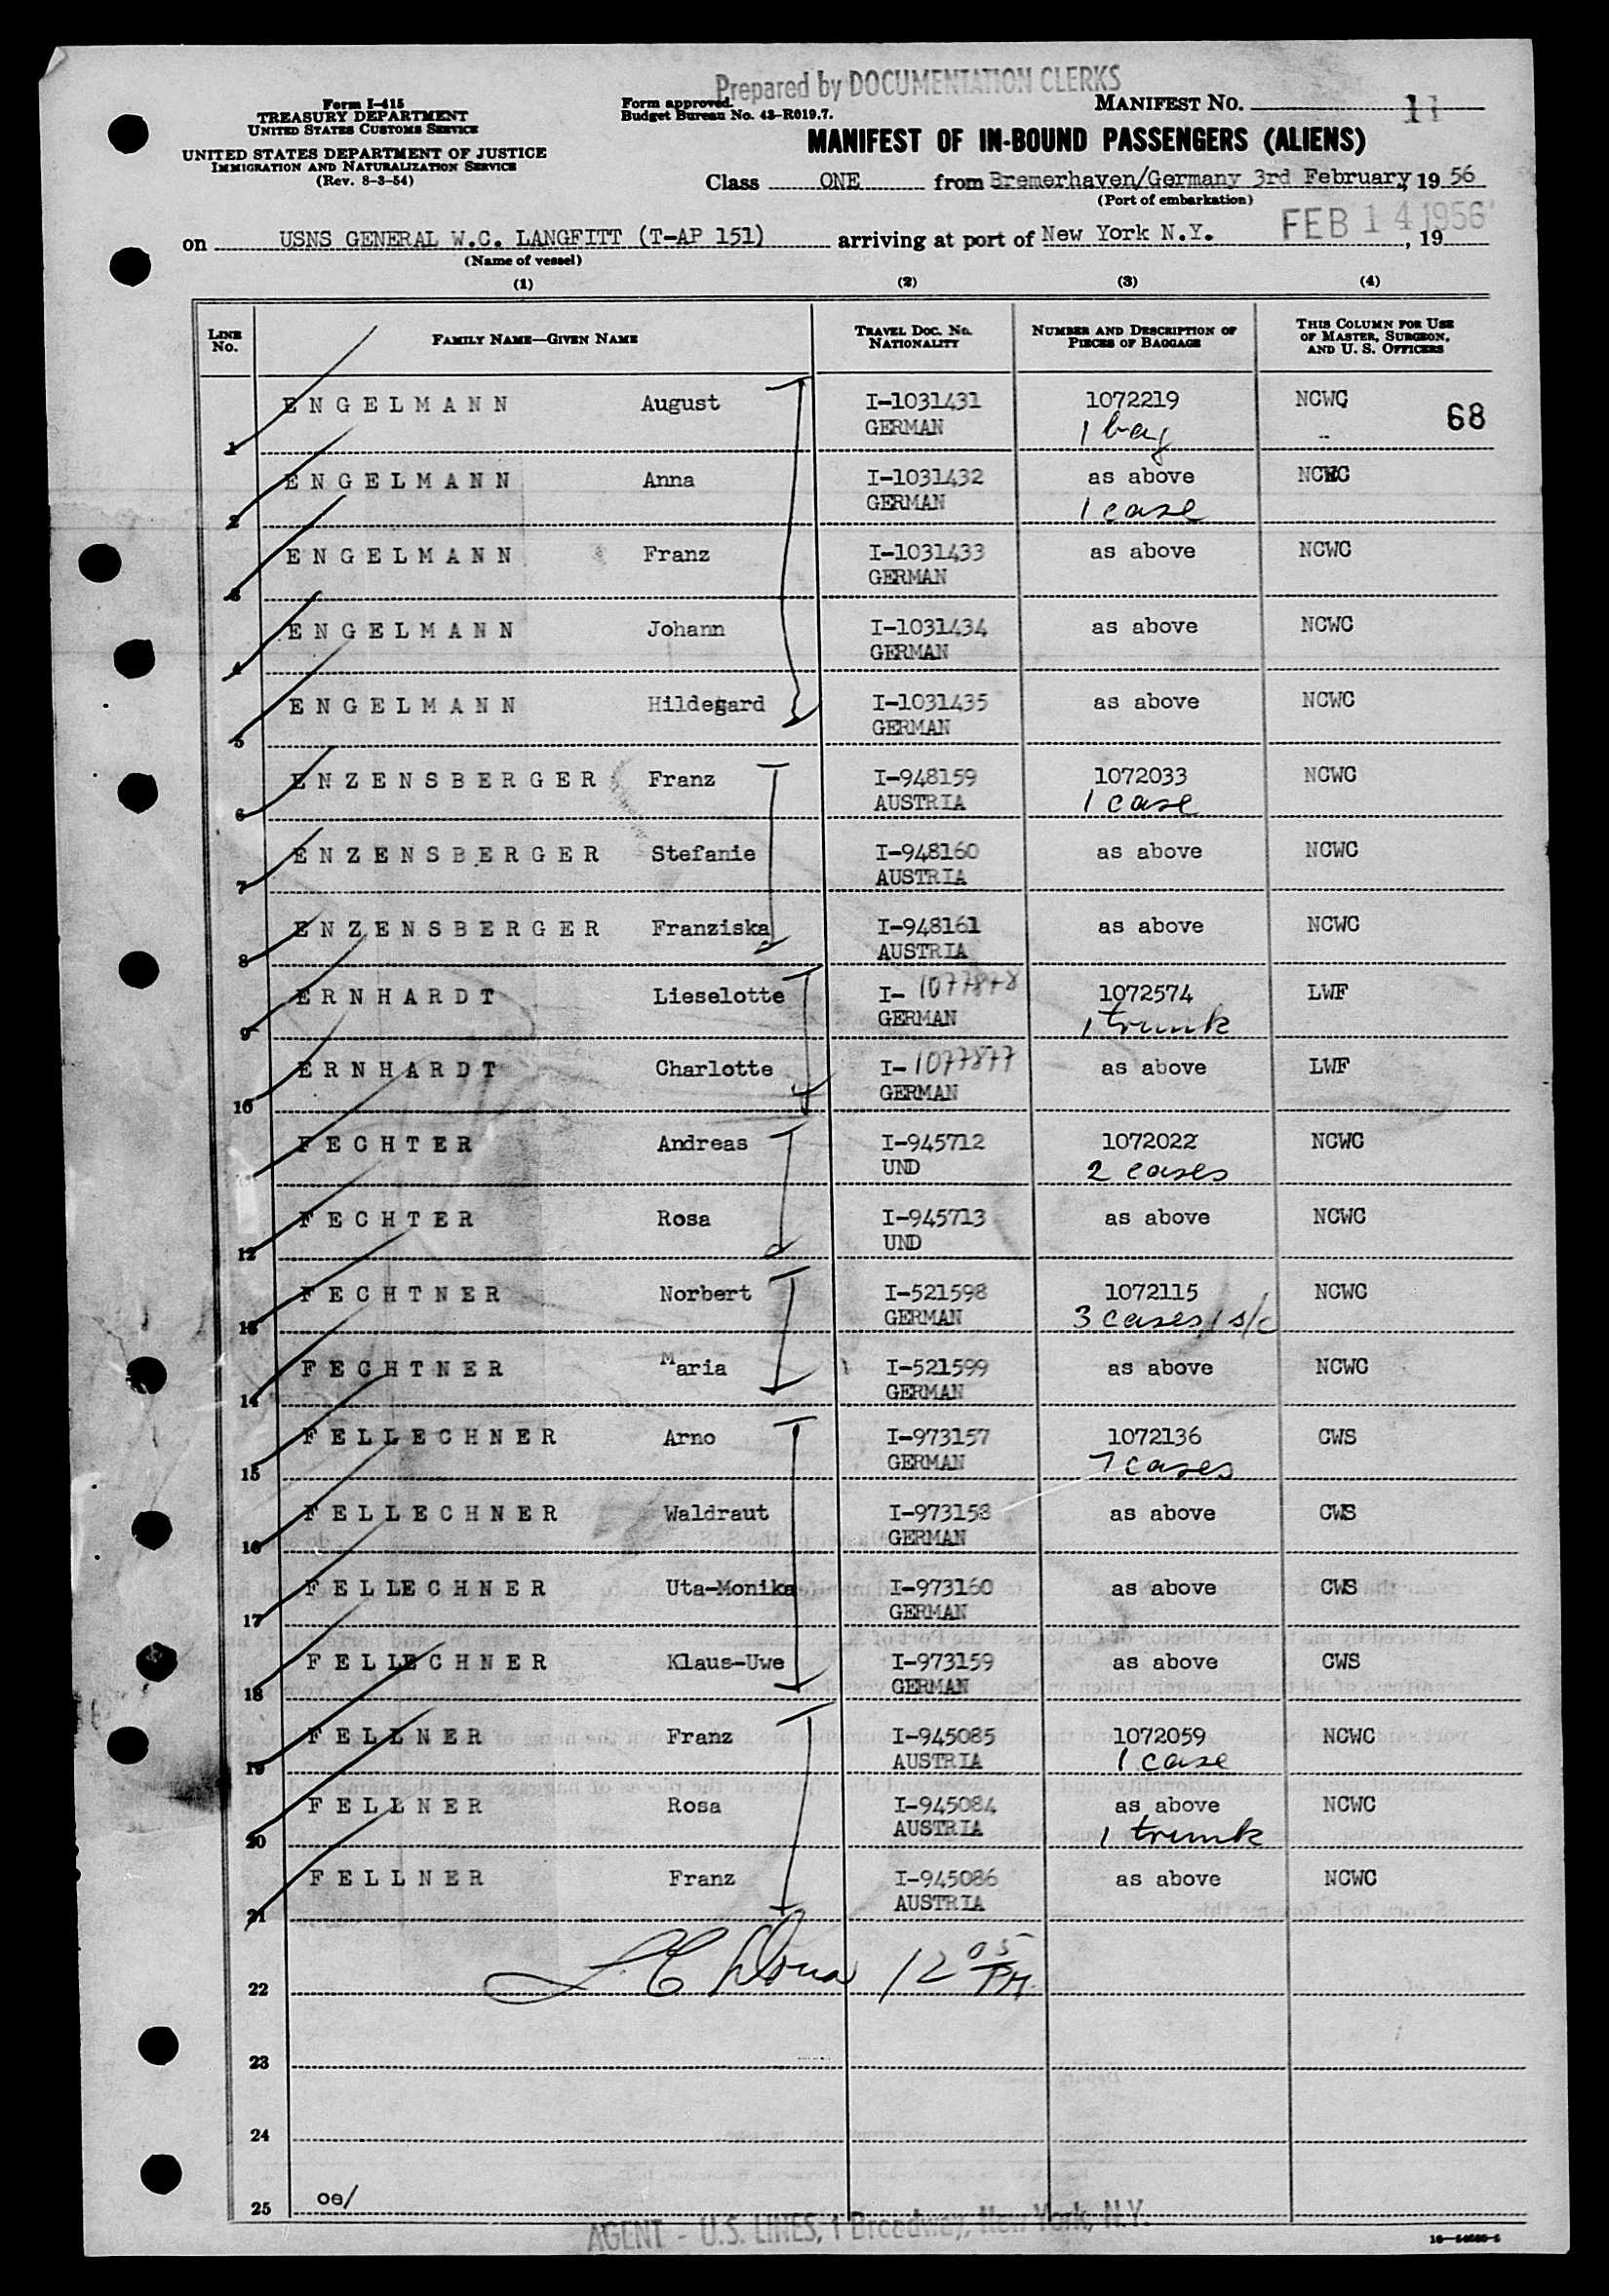 Prepared by DOCUMENTATION CLERKS
Form I-415
TREASURY DEPARTMENT
UNITED STATES CUSTOMS SERVICE
UNITED STATES DEPARTMENT OF JUSTICE
IMMIGRATION AND NATURALIZATION SERVICE
(Rev. 8-3-54)
Form approved.
Budget Bureau No. 43-R019.7.
MANIFEST NO. 11
MANIFEST OF IN-BOUND PASSENGERS (ALIENS)
Class ONE from Bremerhaven/Germany 3rd February, 19 56
(Port of embarkation)
on USNS GENERAL W.C. LANGFITT (T-AP 151) arriving at port of New York N.Y. FEB 14 1956, 19
(Name of vessel)
(1) (2) (3) (4)
LINE NO. FAMILY NAME—GIVEN NAME TRAVEL DOC. NO. NATIONALITY NUMBER AND DESCRIPTION OF PIECES OF BAGGAGE THIS COLUMN FOR USE OF MASTER, SURGEON, AND U. S. OFFICERS
ENGELMANN August I-1031431 1072219 NCWC 68
1 GERMAN 1 bag
ENGELMANN Anna I-1031432 as above NCWC
2 GERMAN 1 case
ENGELMANN Franz I-1031433 as above NCWC
3 GERMAN
ENGELMANN Johann I-1031434 as above NCWC
4 GERMAN
ENGELMANN Hildegard I-1031435 as above NCWC
5 GERMAN
ENZENSBERGER Franz I-948159 1072033 NCWC
6 AUSTRIA 1 case
ENZENSBERGER Stefanie I-948160 as above NCWC
7 AUSTRIA
ENZENSBERGER Franziska I-948161 as above NCWC
8 AUSTRIA
ERNHARDT Lieselotte I-1077878 1072574 LWF
9 GERMAN 1 trunk
ERNHARDT Charlotte I-1077877 as above LWF
10 GERMAN
FECHTER Andreas I-945712 1072022 NCWC
UND 2 cases
FECHTER Rosa I-945713 as above NCWC
12 UND
FECHTNER Norbert I-521598 1072115 NCWC
13 GERMAN 3 cases 1 s/c
FECHTNER Maria I-521599 as above NCWC
14 GERMAN
FELLECHNER Arno I-973157 1072136 CWS
15 GERMAN 7 cases
FELLECHNER Waldraut I-973158 as above CWS
16 GERMAN
FELLECHNER Uta-Monika I-973160 as above CWS
17 GERMAN
FELLECHNER Klaus-Uwe I-973159 as above CWS
18 GERMAN
FELLNER Franz I-945085 1072059 NCWC
19 AUSTRIA 1 case
FELLNER Rosa I-945084 as above NCWC
20 AUSTRIA 1 trunk
FELLNER Franz I-945086 as above NCWC
21 AUSTRIA
12 05 PM
22
23
24
25 oe/
AGENT - U.S. LINES, 1 Broadway, New York, N.Y.